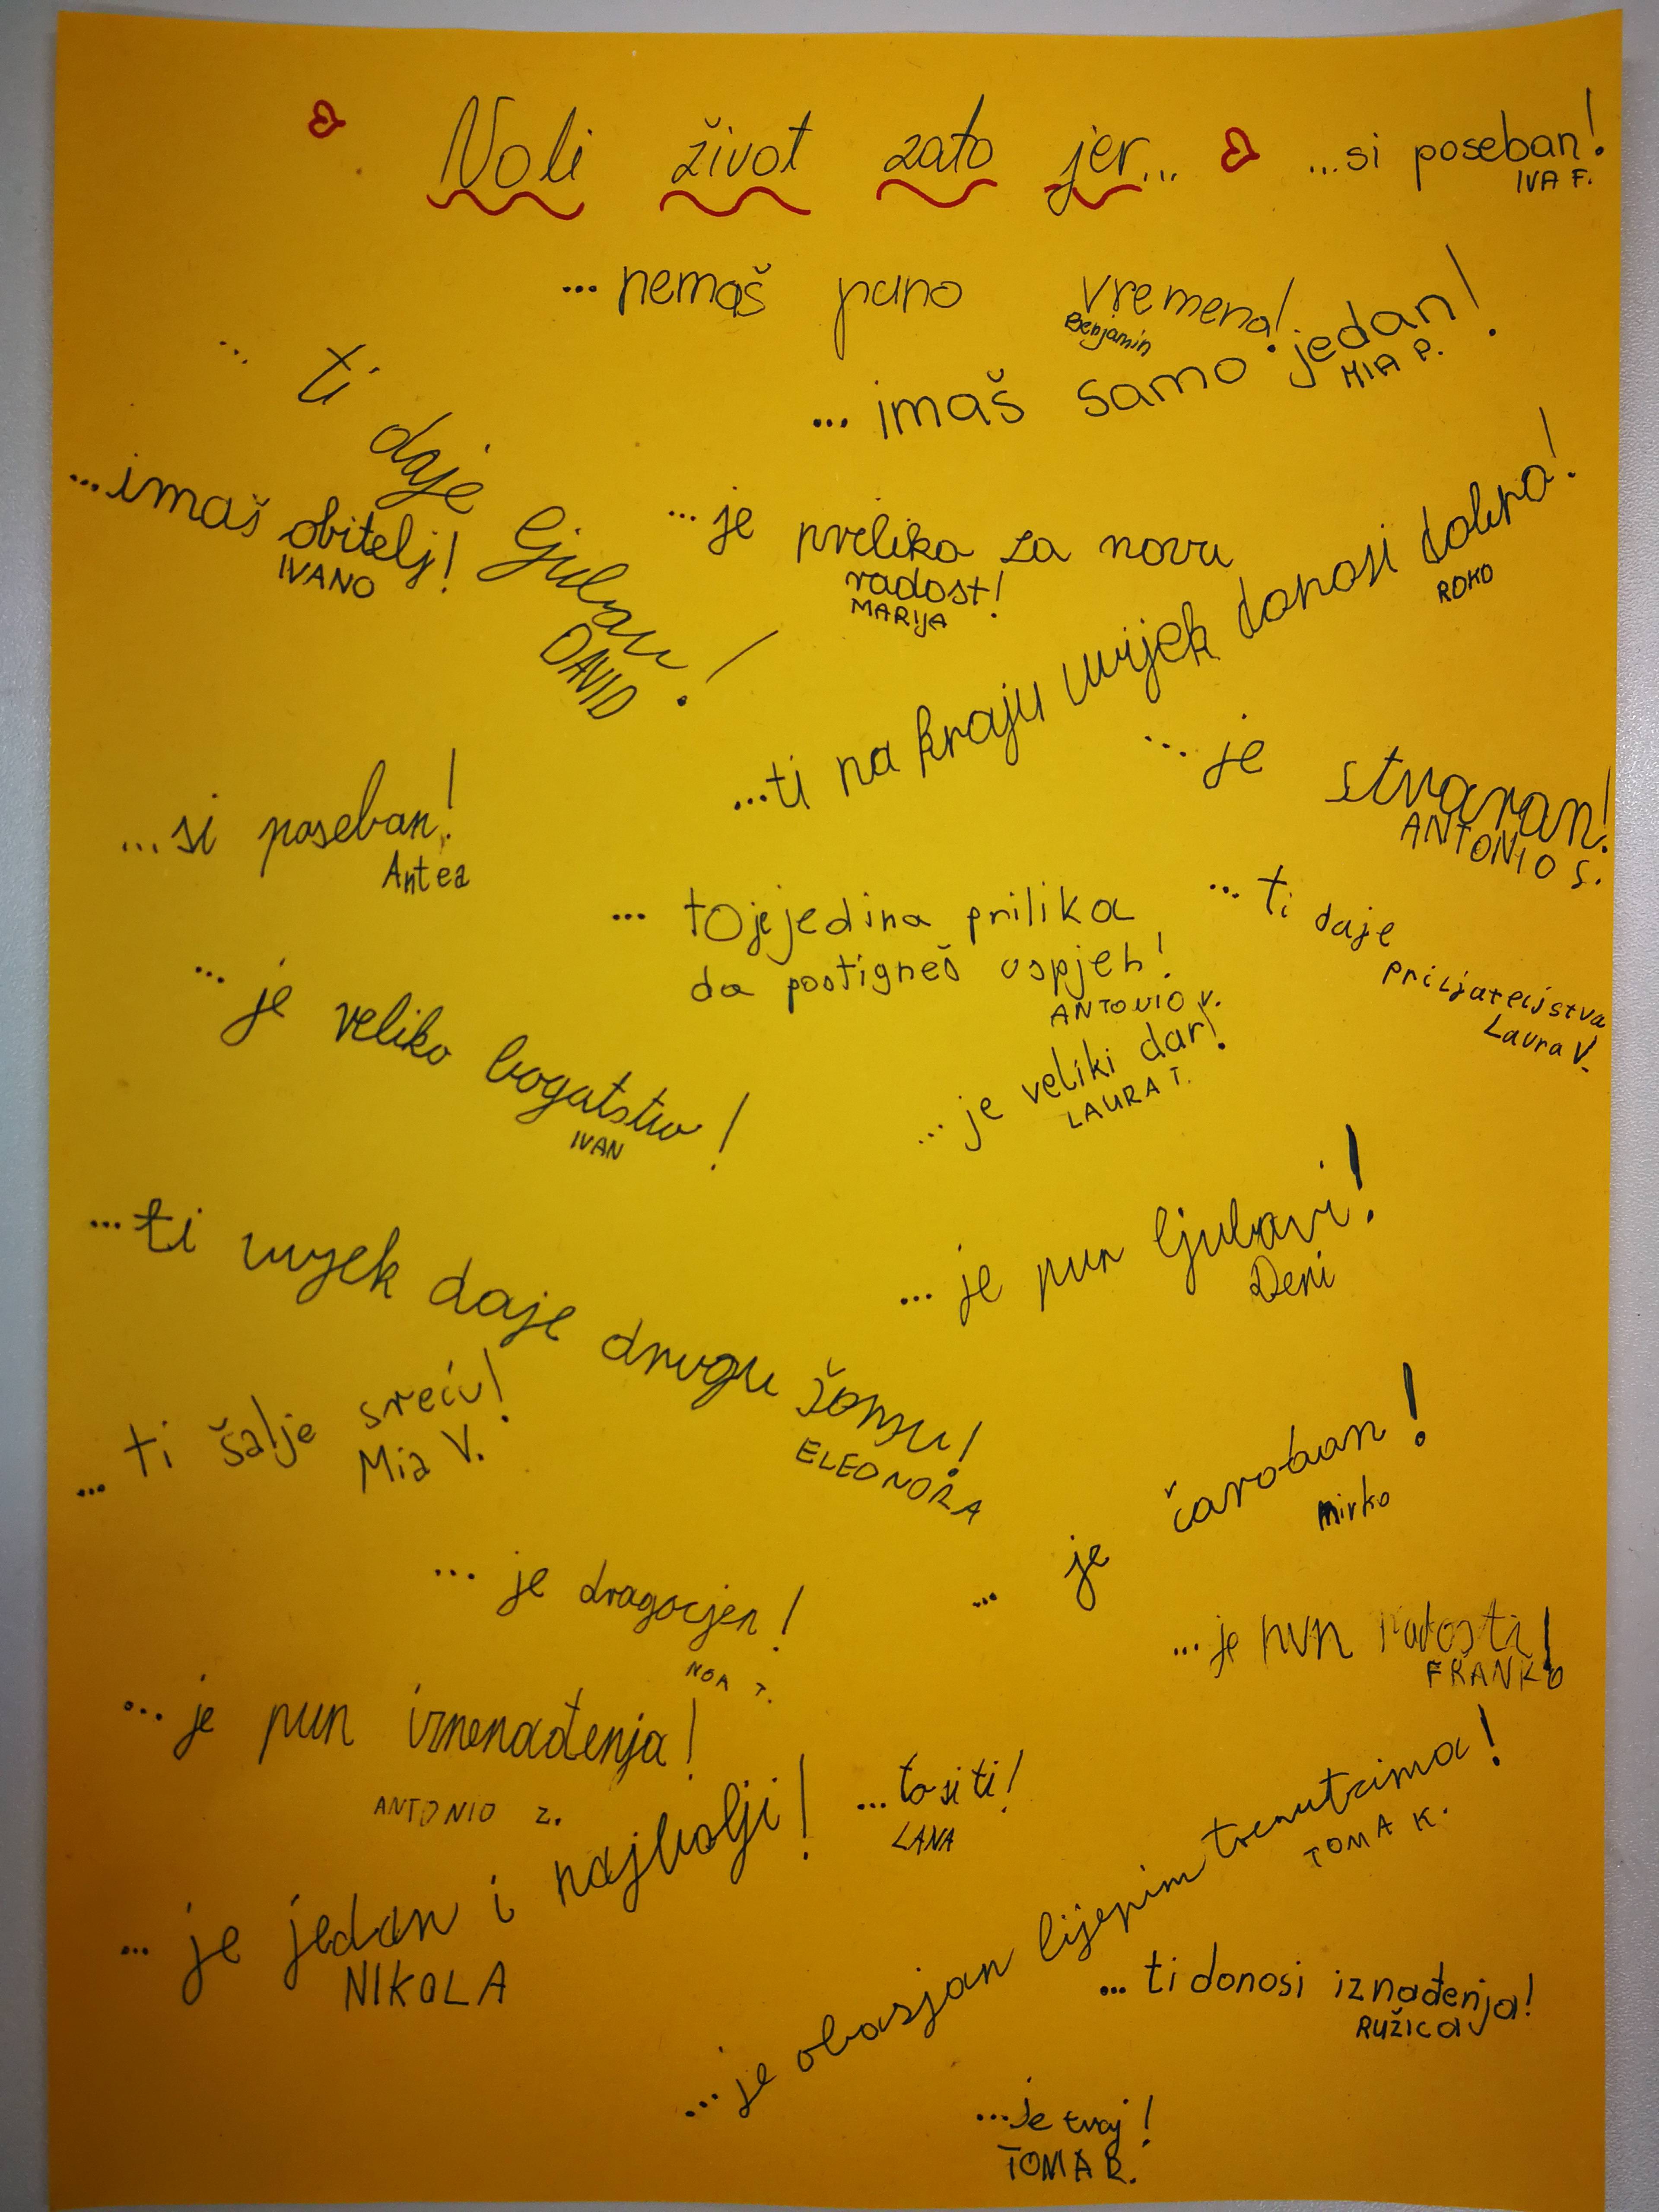 Voli život zato jer...
...si poseban!
IVA F.
...nemaš puno vremena!
Benjamin
...imaš samo jedan!
MIA P.
... ti daje ljubav!
DAVID
...imaš obitelj!
IVANO
...je prelika za novu
radost!
MARIJA
...ti na kraju uvijek donosi dobro!
ROKO
...je stvaran!
ANTONIO S.
...si poseban!
Antea
... to je jedina prilika
da postigneš uspjeh!
ANTONIO V.
... ti daje
pricjateljstva
Laura V.
... je veliko bogatstvo!
IVAN
...je veliki dar!
LAURA T.
...ti uvjek daje drugu šonsu!
ELEONORA
...je pun ljubavi!
Deni
... ti šalje sreću!
Mia V.
... je čaroban!
Mirko
... je dragocjen!
NOA T.
...je pun radosti!
FRANKO
... je pun iznenađenja!
ANTONIO Z.
...to si ti!
LANA
... je jedan i najbolji!
NIKOLA
...je obasjan lijepim trenutcima!
TOMA K.
... ti donosi iznađenja!
RUŽICA
...je tvoj!
TOMA R.